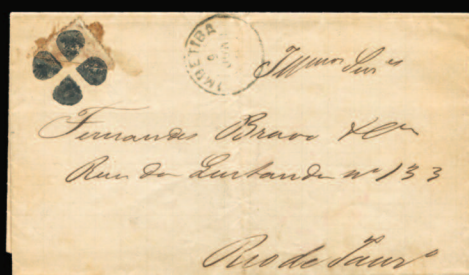 IMBETIBA
Illmos Snrs
Fernandes Bravo & Ca
Rua da Quitanda nº 133
Rio de Janro